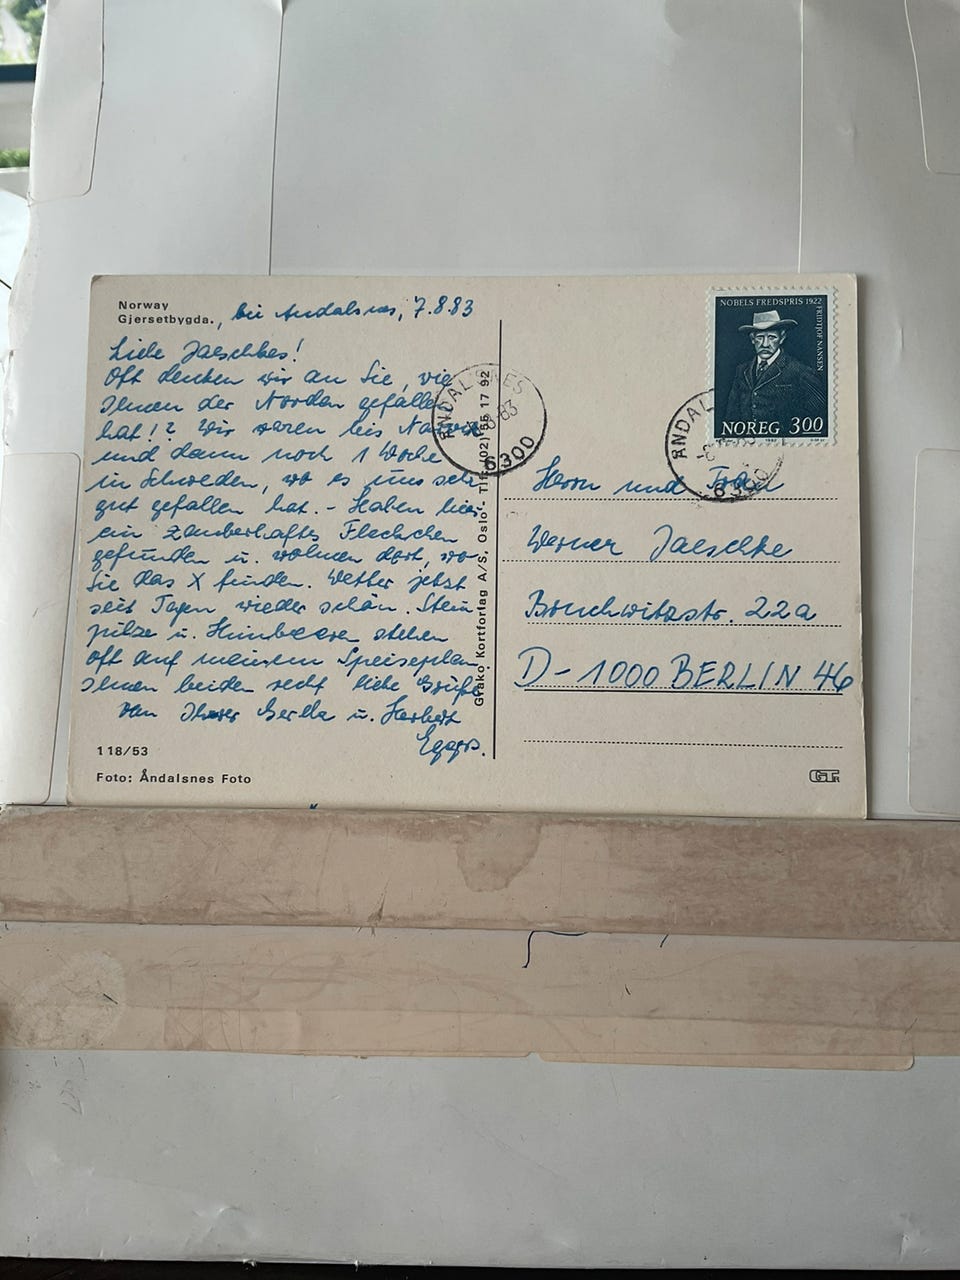 Norway
Gjersetbygda., bei Andalsnes, 7.8.83
Liebe Jaeschkes!
Oft denken wir an Sie, wie
Ihnen der Norden gefallen
hat!? Wir waren bis Narvik
und dann noch 1 Woche
in Schweden, wo es uns sehr
gut gefallen hat. - Haben hier
ein zauberhaftes Fleckchen
gefunden u. wohnen dort, wo
Sie das X finden. Wetter jetzt
seit Tagen wieder schön. Stein-
pilze u. Himbeeren stehen
oft auf meinem Speiseplan.
Ihnen beiden recht liebe Grüße
von Ihrer Gerda u. Herbert
118/53
Foto: Åndalsnes Foto
Grako Kortforlag A/S, Oslo - Tlf. (02) 55 17 92
ÅNDALSNES
-8-83
6300
NOBELS FREDSPRIS 1922
FRIDTJOF NANSEN
NOREG 3.00
ÅNDAL
6300
Herrn und Frau
Werner Jaeschke
Bruchwitzstr. 22a
D-1000 BERLIN 46